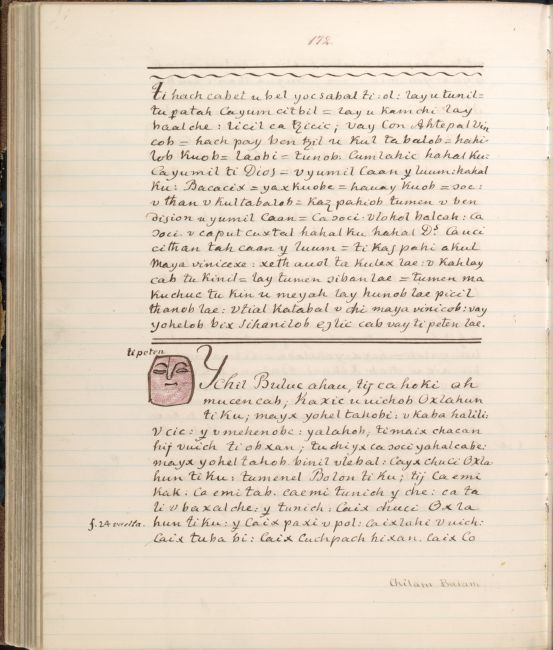 172.
ti hach cabet u bel yocsabal ti: ol: lay u tunil=
tu patah Cayum citbil = lay u kamchi lay
baalche: licil ca tzicic; vay Con Ahtepal vin
cob = hach pay ben tzil u kul tabalob = hahi
lob kuob = laobi = tunob. Cumlahic hahal ku:
Cayumil ti Dios = v yumil Caan y luum: hahal
ku: Bacacix = yax kuobe = hauay kuob = soc:
v than v kultabalob = kaz pahiob tumen v ben
dision u yumil Caan = Ca soci: vlohol balcah: ca
soci. v caput cuxtal hahal ku hahal Ds. Cauci
cithan tah caan y luum = ti kas pahi a kul
Maya vinicexe: xeth auol ta kulex lae: v kahlay
cab tu kinil = lay tumen siban lae = tumen ma
kuchuc tu kin u meyah lay hunob lae picil
thanob lae: vtial katabal v chi maya vinicob: vay
yohelob bix sihanilob eslic cab vay ti peten lae.
ti peten
Ychil Buluc ahau, tij ca hoki ah
mucencab; kaxic u uichob Oxlahun
ti ku; mayx yohel tahobi: v kaba halili:
v cic: y v mehenobe: yalahob; ti maix chacan
hij vuich ti ob xan; tuchiyx ca soci yahalcabe:
mayx yohel tahob binil vlebal: Cayx chuci Oxla
hun ti ku: tumenel Bolon ti ku; tij Ca emi
kak: Ca emi tab. ca emi tunich y che: ca ta
li v baxalche: y tunich: Caix chuci Oxla
f. 24 vuelta. hun ti ku: y Caix paxi v pol: caix lahi v uich:
Caix tuba bi: Caix Cuchpach hixan. Caix Co
Chilam Balam